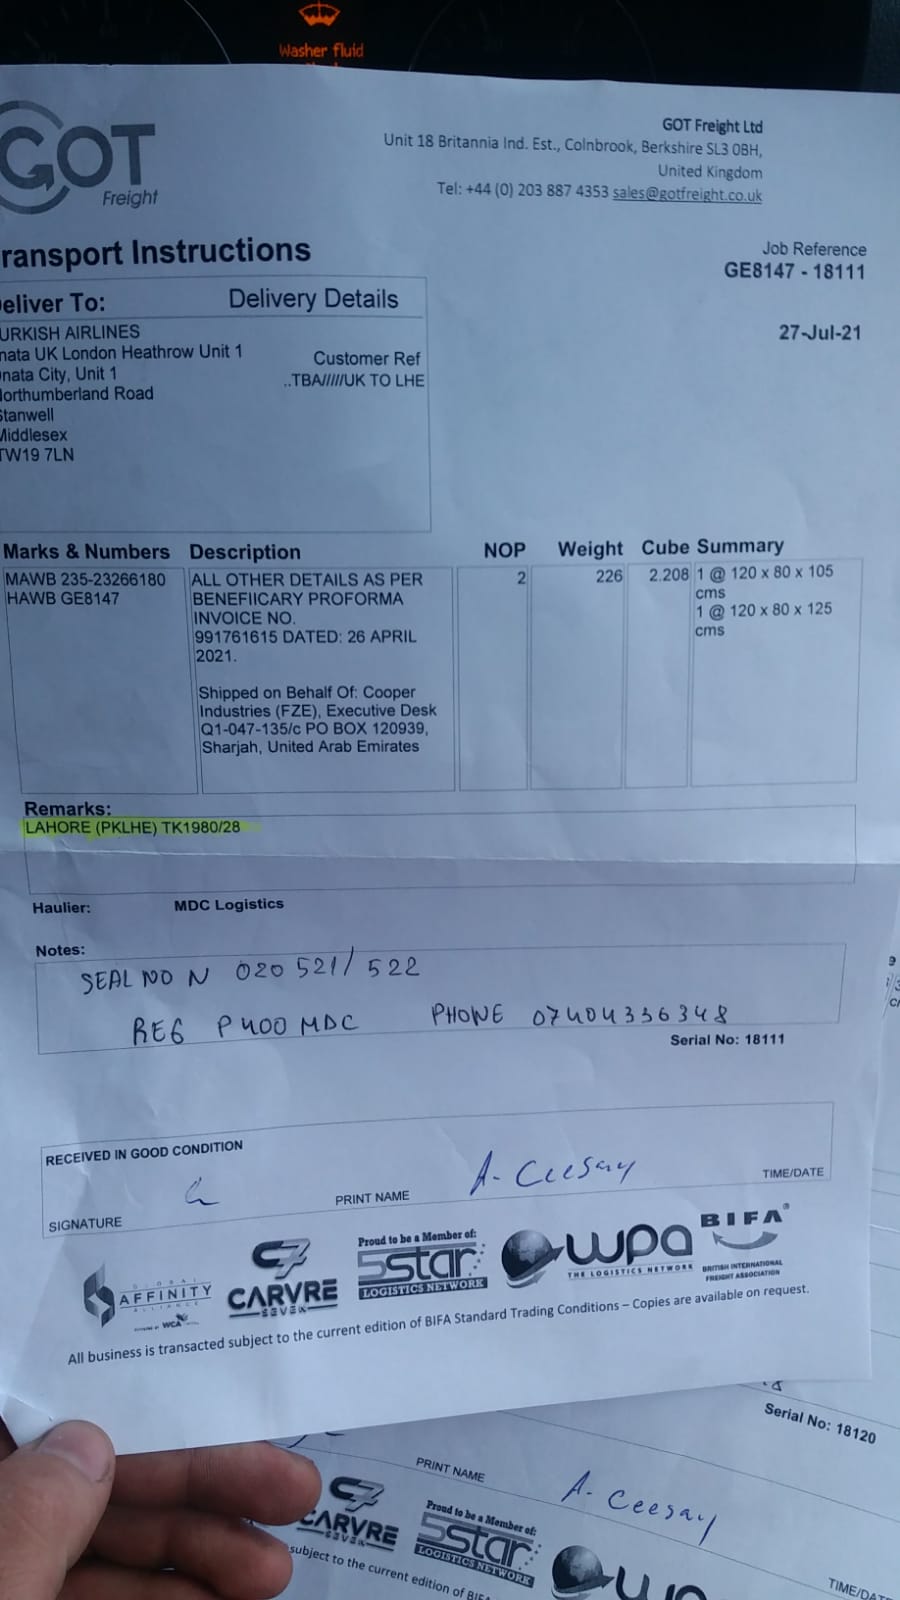 Washer fluid
GOT
Freight
GOT Freight Ltd
Unit 18 Britannia Ind. Est., Colnbrook, Berkshire SL3 0BH,
United Kingdom
Tel: +44 (0) 203 887 4353 sales@gotfreight.co.uk
ransport Instructions
Job Reference
GE8147 - 18111
27-Jul-21
eliver To:
Delivery Details
URKISH AIRLINES
nata UK London Heathrow Unit 1
nata City, Unit 1
Northumberland Road
Stanwell
Middlesex
TW19 7LN
Customer Ref
..TBA/////UK TO LHE
Marks & Numbers Description NOP Weight Cube Summary
MAWB 235-23266180
HAWB GE8147
ALL OTHER DETAILS AS PER
BENEFIICARY PROFORMA
INVOICE NO.
991761615 DATED: 26 APRIL
2021.
Shipped on Behalf Of: Cooper
Industries (FZE), Executive Desk
Q1-047-135/c PO BOX 120939,
Sharjah, United Arab Emirates
2
226
2.208
1 @ 120 x 80 x 105
cms
1 @ 120 x 80 x 125
cms
Remarks:
LAHORE (PKLHE) TK1980/28
Haulier: MDC Logistics
Notes:
SEAL NO N 020 521/522
REG P400 MDC PHONE 07404336348
Serial No: 18111
RECEIVED IN GOOD CONDITION
SIGNATURE
PRINT NAME
A. Ceesay
TIME/DATE
GLOBAL
AFFINITY
ALLIANCE
WCA
C7
CARVRE
SEVEN
Proud to be a Member of:
5star
LOGISTICS NETWORK
wpa
THE LOGISTICS NETWORK
BIFA®
BRITISH INTERNATIONAL
FREIGHT ASSOCIATION
All business is transacted subject to the current edition of BIFA Standard Trading Conditions – Copies are available on request.
Serial No: 18120
PRINT NAME
A. Ceesay
TIME/DAT
C7
CARVRE
SEVEN
Proud to be a Member of:
5star
LOGISTICS NETWORK
subject to the current edition of BIFA